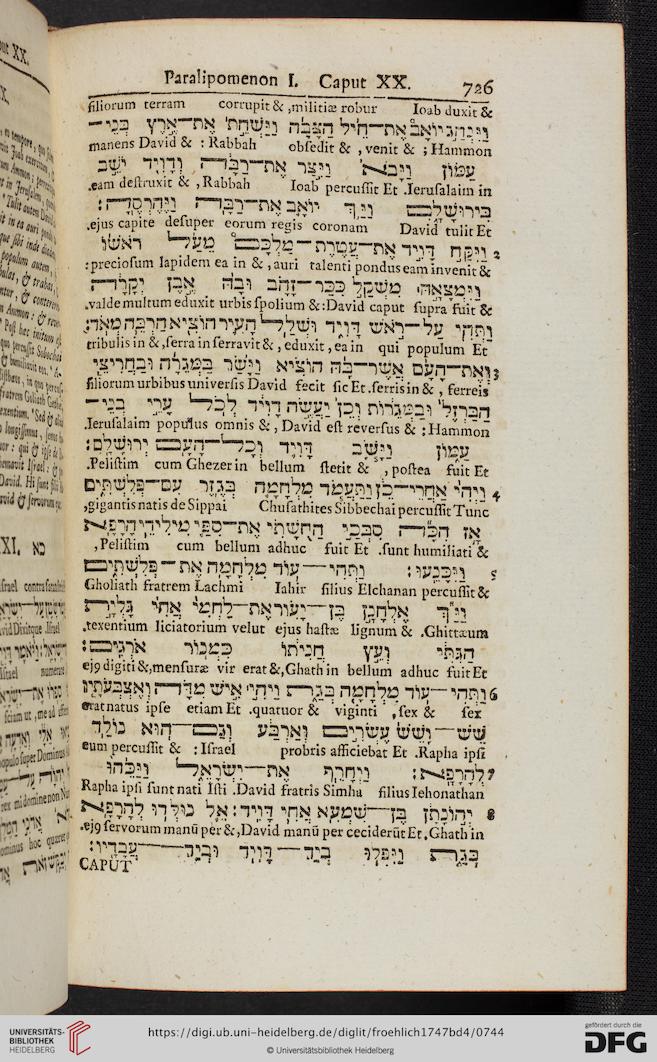 Paralipomenon I. Caput XX. 726
filiorum terram corrupit & ,militiæ robur Ioab duxit &
וַיִּנְהַג יוֹאָב אֶת־חֵיל הַצָּבָא וַיַּשְׁחֵת אֶת־אֶרֶץ בְּנֵי־
manens David & : Rabbah obsedit & , venit & ; Hammon
עַמּוֹן וַיָּבֹא וַיָּצַר אֶת־רַבָּה וְדָוִיד יֹשֵׁב
.eam destruxit & , Rabbah Ioab percussit Et .Ierusalaim in
בִּירוּשָׁלִָם וַיַּךְ יוֹאָב אֶת־רַבָּה וַיֶּהֶרְסֶהָ:
.ejus capite desuper eorum regis coronam David tulit Et
2 וַיִּקַּח דָּוִיד אֶת־עֲטֶרֶת־מַלְכָּם מֵעַל רֹאשׁוֹ
:preciosum lapidem ea in & , auri talenti pondus eam invenit &
וַיִּמְצָאָהּ מִשְׁקַל כִּכַּר־זָהָב וּבָהּ אֶבֶן יְקָרָה
.valde multum eduxit urbis spolium &:David caput supra fuit &
וַתְּהִי עַל־רֹאשׁ דָּוִיד וּשְׁלַל הָעִיר הוֹצִיא הַרְבֵּה מְאֹד:
tribulis in & ,serra in serravit & , eduxit , ea in qui populum Et
3 וְאֶת־הָעָם אֲשֶׁר־בָּהּ הוֹצִיא וַיָּשַׂר בַּמְּגֵרָה וּבַחֲרִיצֵי
filiorum urbibus universis David fecit sic Et .serris in & , ferreis
הַבַּרְזֶל וּבַמְּגֵרוֹת וְכֵן יַעֲשֶׂה דָוִיד לְכֹל עָרֵי בְנֵי־
.Ierusalaim populus omnis & , David est reversus & : Hammon
עַמּוֹן וַיָּשָׁב דָּוִיד וְכָל־הָעָם יְרוּשָׁלִָם:
.Pelistim cum Ghezer in bellum stetit & , postea fuit Et
4 וַיְהִי אַחֲרֵי־כֵן וַתַּעֲמֹד מִלְחָמָה בְּגֶזֶר עִם־פְּלִשְׁתִּים
,gigantis natis de Sippai Chusathites Sibbechai percussit Tunc
אָז הִכָּה סִבְּכַי הַחֻשָׁתִי אֶת־סִפַּי מִילִידֵי הָרְפָא
, Pelistim cum bellum adhuc fuit Et .sunt humiliati &
5 וַיִּכָּנֵעוּ: וַתְּהִי־עוֹד מִלְחָמָה אֶת־פְּלִשְׁתִּים
Gholiath fratrem Lachmi Iahir filius Elchanan percussit &
וַיַּךְ אֶלְחָנָן בֶּן־יָעוּר אֶת־לַחְמִי אֲחִי גָּלְיָת
.texentium liciatorium velut ejus hastæ lignum & .Ghittæum
הַגִּתִּי וְעֵץ חֲנִיתוֹ כִּמְנוֹר אֹרְגִים:
ej9 digiti &,mensuræ vir erat &,Ghath in bellum adhuc fuit Et
6 וַתְּהִי־עוֹד מִלְחָמָה בְּגַת וַיְהִי אִישׁ מִדָּה וְאֶצְבְּעֹתָיו
erat natus ipse etiam Et .quatuor & viginti , sex & sex
שֵׁשׁ־וָשֵׁשׁ עֶשְׂרִים וְאַרְבַּע וְגַם־הוּא נוֹלַד
eum percussit & : Israel probris afficiebat Et .Rapha ipsi
7 לְהָרָפָא: וַיְחָרֵף אֶת־יִשְׂרָאֵל וַיַּכֵּהוּ
Rapha ipsi sunt nati Isti .David fratris Simha filius Iehonathan
8 יְהוֹנָתָן בֶּן־שִׁמְעָא אֲחִי דָוִיד: אֵל נוּלְּדוּ לְהָרָפָא
.ej9 servorum manū per &,David manū per ceciderūt Et,Ghath in
בְּגַת וַיִּפְּלוּ בְיַד־דָּוִיד וּבְיַד־עֲבָדָיו:
CAPUT
UNIVERSITÄTS-
BIBLIOTHEK
HEIDELBERG
https://digi.ub.uni-heidelberg.de/diglit/froehlich1747bd4/0744
© Universitätsbibliothek Heidelberg
gefördert durch die
DFG